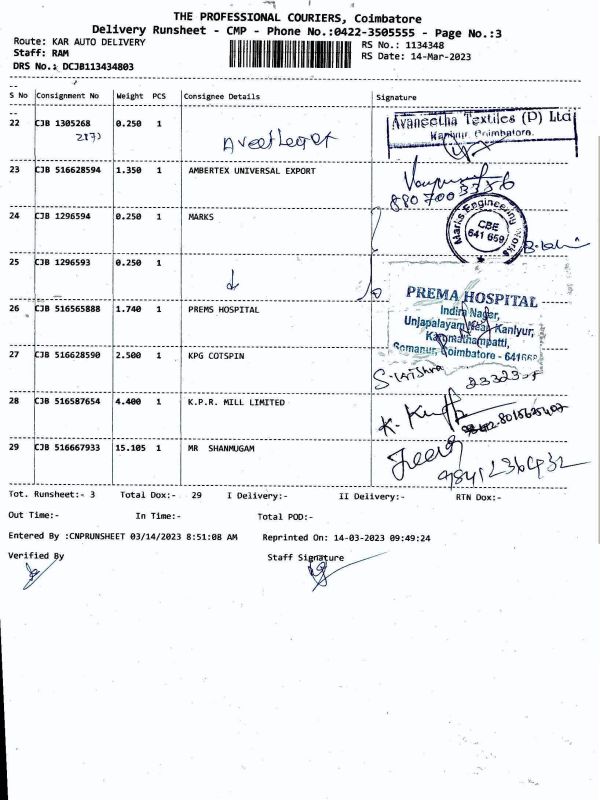 THE PROFESSIONAL COURIERS, Coimbatore
Delivery Runsheet - CMP - Phone No.:0422-3505555 - Page No.:3
Route: KAR AUTO DELIVERY
Staff: RAM
DRS No.: DCJB113434803
RS No.: 1134348
RS Date: 14-Mar-2023
S No Consignment No Weight PCS Consignee Details Signature
22 CJB 1305268 0.250 1
Avaneetha Textiles (P) Ltd
Kaniyur, Coimbatore.
23 CJB 516628594 1.350 1 AMBERTEX UNIVERSAL EXPORT
24 CJB 1296594 0.250 1 MARKS
Marks Engineering Works
CBE
641 659
25 CJB 1296593 0.250 1
26 CJB 516565888 1.740 1 PREMS HOSPITAL
PREMA HOSPITAL
Indira Nagar,
Unjapalayam Near Kaniyur,
Karumathampatti,
Somanur, Coimbatore - 641668
27 CJB 516628590 2.500 1 KPG COTSPIN
28 CJB 516587654 4.400 1 K.P.R. MILL LIMITED
29 CJB 516667933 15.105 1 MR SHANMUGAM
Tot. Runsheet:- 3 Total Dox:- 29 I Delivery:- II Delivery:- RTN Dox:-
Out Time:- In Time:- Total POD:-
Entered By :CNPRUNSHEET 03/14/2023 8:51:08 AM Reprinted On: 14-03-2023 09:49:24
Verified By Staff Signature